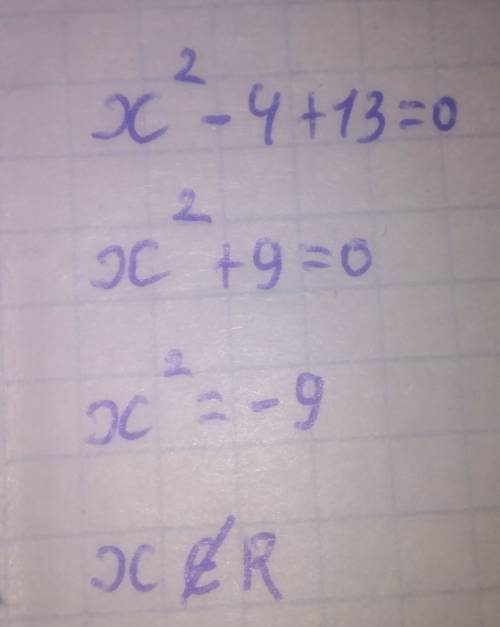 x² - 4 + 13 = 0
x² + 9 = 0
x² = -9
x ∉ R